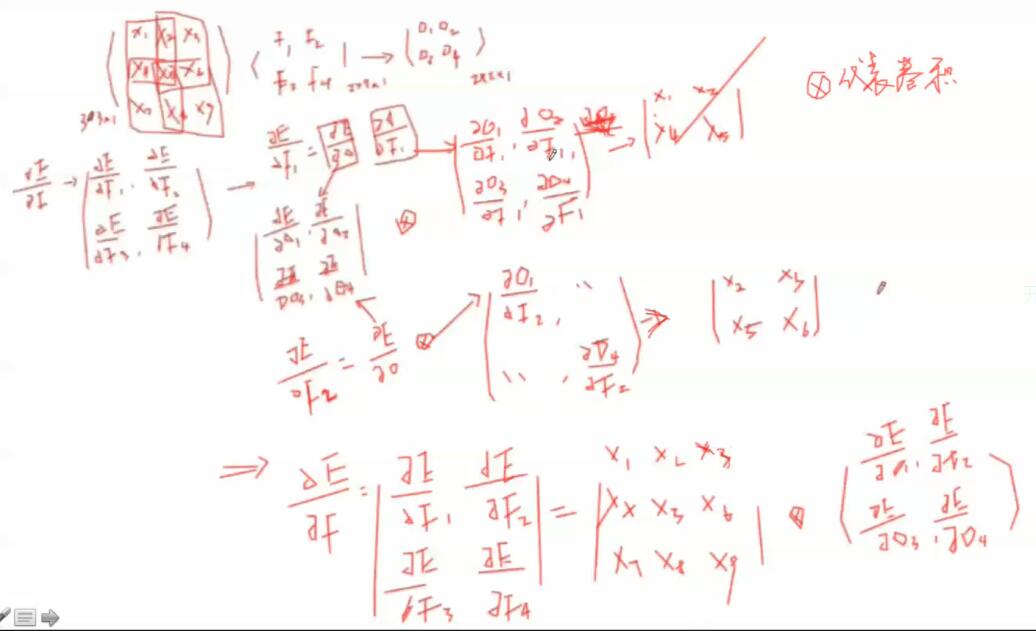 X₁ X₂ X₃
X₄ X₅ X₆
X₇ X₈ X₉
3*3*1
F₁ F₂
F₃ F₄
2*2*1
→
O₁ O₂
O₃ O₄
2*2*1
⊗代表卷积
∂E/∂F → | ∂E/∂F₁, ∂E/∂F₂
∂E/∂F₃, ∂E/∂F₄ |
→ ∂E/∂F₁ = ∂E/∂O ∂O/∂F₁ → | ∂O₁/∂F₁, ∂O₂/∂F₁,
∂O₃/∂F₁, ∂O₄/∂F₁ |
→ | X₁ X₂
X₄ X₅ |
| ∂E/∂O₁, ∂E/∂O₂
∂E/∂O₃, ∂E/∂O₄ | ⊗
∂E/∂F₂ = ∂E/∂O ⊗ | ∂O₁/∂F₂, ..
.. , ∂O₄/∂F₂ |
⇒ | X₂ X₃
X₅ X₆ |
⇒ ∂E/∂F = | ∂E/∂F₁ ∂E/∂F₂
∂E/∂F₃ ∂E/∂F₄ |
= | X₁ X₂ X₃
X₄ X₅ X₆
X₇ X₈ X₉ |
⊗ ( ∂E/∂O₁, ∂E/∂O₂
∂E/∂O₃, ∂E/∂O₄ )